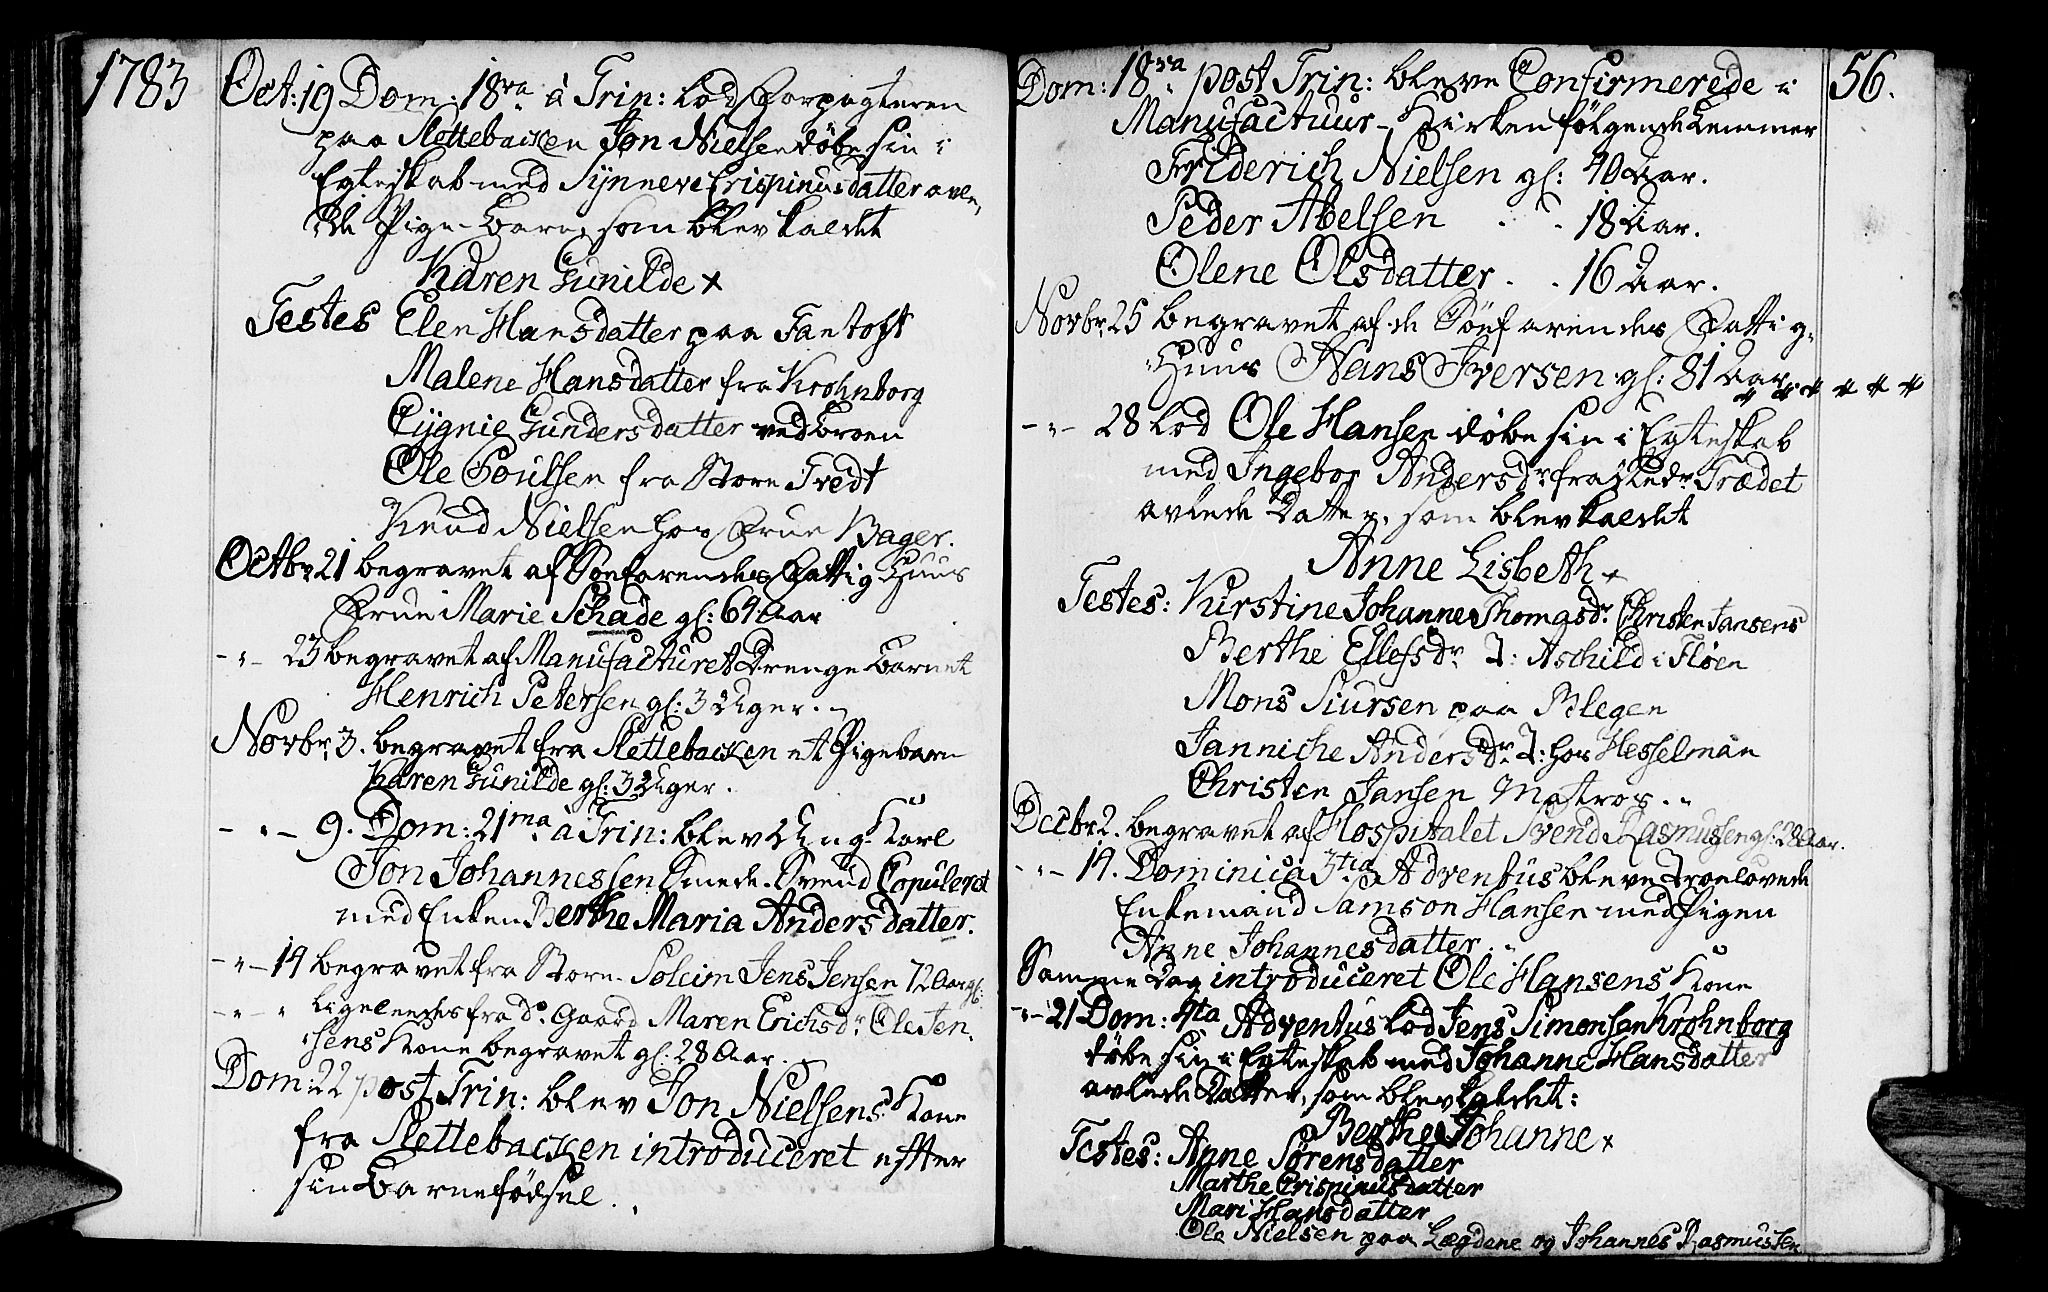 1783
Oct: 19 Dom: 18va à Trin: lod Forpagteren
paa Slettebacken Jon Nielsen døbe sin i
Egteskab med Synneve Crispinusdatter avle-
de Pige-Barn, som blev kaldet
Karen Gunilde x
Testes Elen Hansdatter paa Fantoft
Malene Hansdatter fra Krohnborg
Eygnie Gundersdatter ved Broen
Ole Poulsen fra Store Tredt
Knud Nielsen hos Frue Bager.
Octbr 21 begravet af Søefarendes Fattig Huus
Frue Marie Schade gl: 64 Aar
- " - 23 begravet af Manufacturet Drenge Barnet
Henrich Petersen gl: 3 Uger.
Novbr 3. begravet fra Slettebacken et Pigebarn
Karen Gunilde gl: 3 Uger.
- " - 9. Dom: 21ma à Trin: blev Ung Karl
Jon Johannessen Smede-Svend Copuleret
med Enken Berthe Maria Andersdatter.
- " - 14 begravet fra Store-Soleim Jens Jensen 72 Aar gl:
- " - " Ligeledes fra do Gaard Maren Erichsdr Ole Jen-
sens Kone begravet gl: 28 Aar.
Dom: 22 post Trin: blev Jon Nielsens Kone
fra Slettebacken introduceret efter
sin Barnefødsel.
56.
Dom: 18va post Trin: bleve Confirmerede i
Manufactuur-Kirken følgende Lemmer
Friderich Nielsen gl: 40 Aar.
Peder Abelsen . . 18 Aar.
Olene Olsdatter . . 16 Aar.
Novbr 25 begravet af de Søefarendes Fattig-
Huus Hans Iversen gl: 81 Aar
- " - 28 lod Ole Hansen døbe sin i Egteskab
med Ingebor Andersdr fra Nedr Trædet
avlede Datter, som blev kaldet
Anne Lisbeth x
Testes: Kirstine Johanne Thomasdr Christen Jansens
Berthe Ellefsdr T: Aschild i Fløen
Mons Siursen paa Blegen
Janniche Andersdr T: hos Hesselman
Christen Jansen Matros.
Decbr 2. begravet af Hospitalet Svend Rasmussen gl: 28 Aar.
- " - 14. Dominica 3tia Adventus bleve Troelovede
Enkemand Samson Hansen med Pigen
Anne Johannesdatter.
Samme Dag introduceret Ole Hansens Kone
- " - 21 Dom: 4ta Adventus lod Jens Simonsen Krohnborg
døbe sin i Egteskab med Johanne Hansdatter
avlede Datter, som blev kaldet:
Berthe Johanne x
Testes: Anne Sørensdatter
Marthe Crispinusdatter
Mari Hansdatter
Ole Nielsen paa Lægdene og Johannes Rasmussen